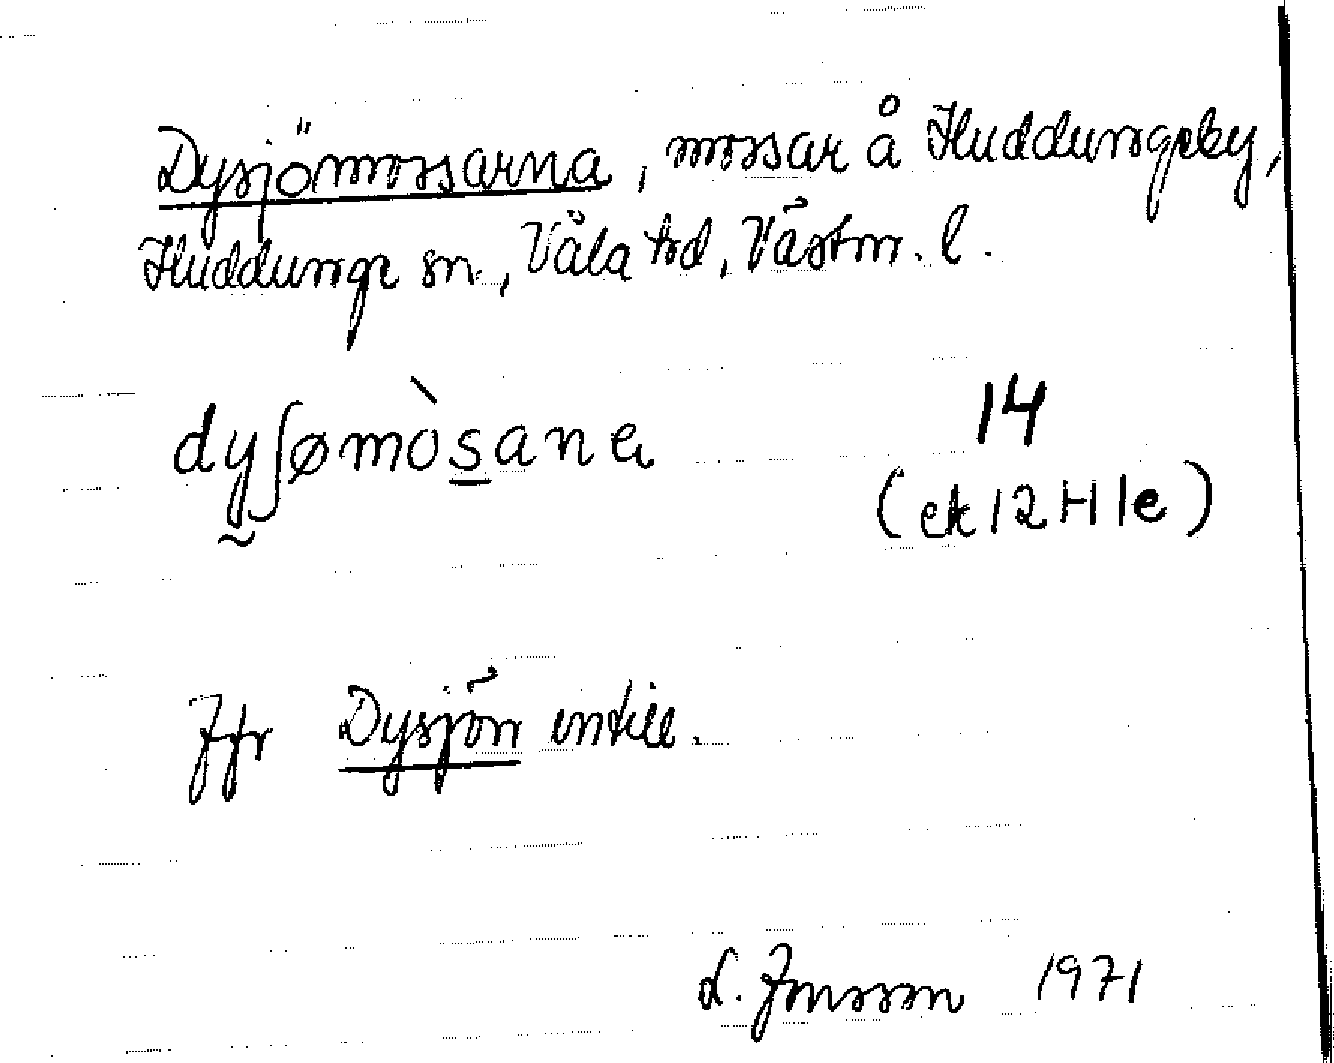 Dysjömossarna, mossar å Huddungeby,
Huddunge sn., Våla hd, Västm. l.
dyʃømòsana 14
(ek 12 H 1e)
Jfr Dysjön intill.
L. Jonsson 1971